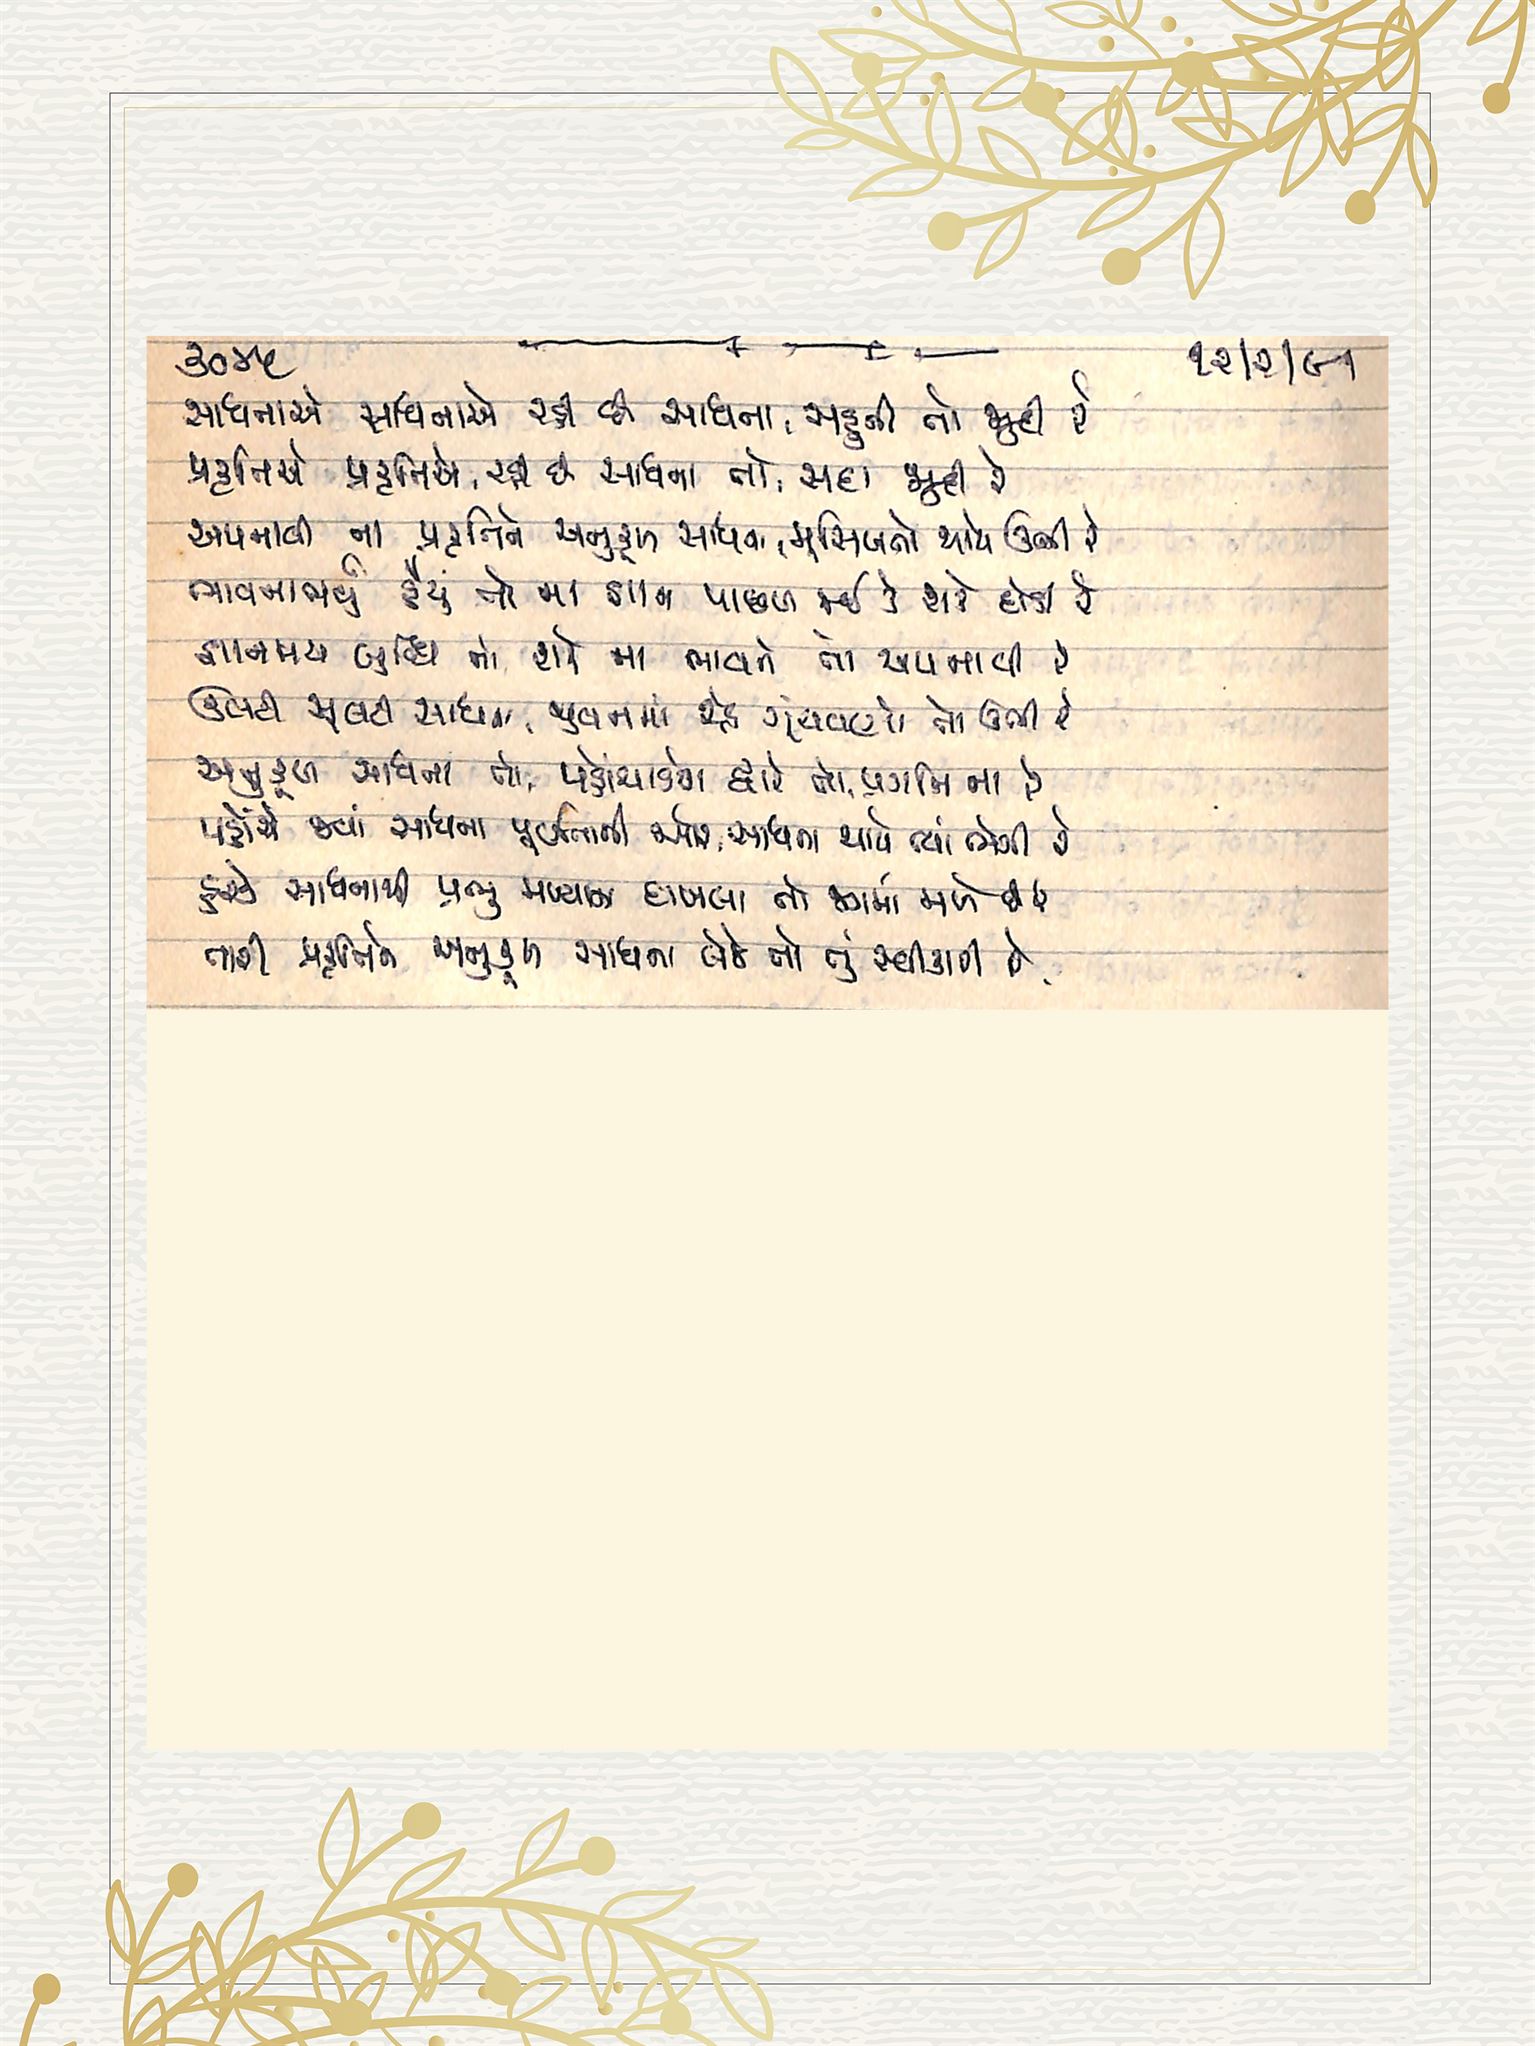 ૩૦૪૫
૧૨/૨/૯૧
સાધનાએ સાધનાએ રહી છે સાધના, સહુની તો જુદી રે
પ્રકૃતિએ પ્રકૃતિએ, રહી છે સાધના તો, સદા જુદી રે
અપનાવી ના પ્રકૃતિને અનુકૂળ સાધના, મુસિબતો થાયે ઊભી રે
ભાવનાભર્યું હૈયું તો ના જ્ઞાન પાછળ કાંઈ કે શકે દોડી રે
જ્ઞાનમય બુદ્ધિ તો, શકે ના ભાવને તો અપનાવી રે
ઊલટી સૂલટી સાધના, જીવનમાં કરે ગૂંચવણો તો ઊભી રે
અનુકૂળ સાધના તો, પહોંચાડશે દ્વારે તો, પ્રગતિના રે
પહોંચે જ્યાં સાધના પૂર્ણતાની ઓર, સાધના થાયે ત્યાં ભેગી રે
હરએ સાધનાથી પ્રભુ મળ્યાના દાખલા તો જગમાં મળે છે રે
તારી પ્રકૃતિને અનુકૂળ સાધના લેજે તો તું સ્વીકારી રે